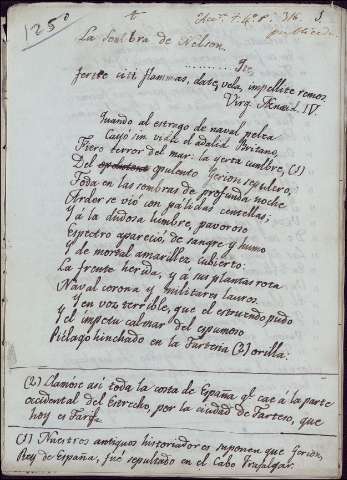 125º
La Sombra de Nelson.
Ite,
ferte citi flammas, date vela, impellite remos.
Virg. Æneid. IV.
Quando al estrago de naval pelea
Cayó sin vida el adalid Britano,
Fiero terror del mar: la yerta cumbre, (1)
Del opulento Gerion sepulcro,
Toda en las sombras de profunda noche
Arder se vió con pálidas centellas;
Y á la dudosa lumbre, pavoroso
Espectro apareció, de sangre y humo
Y de mortal amarillez cubierto:
La frente herida, y á sus plantas rota
Naval corona y militares lauros.
Y en voz terrible, que el estruendo pudo
Y el impetu calmar del espumoso
Piélago hinchado en la Tartesia (2) orilla:
(2) Llamóse así toda la costa de España qe. cae á la parte
occidental del Estrecho, por la ciudad de Tarteso, que
hoy es Tarifa.
(1) Nuestros antiguos historiadores suponen que Gerion,
Rey de España, fué sepultado en el Cabo Trafalgar.